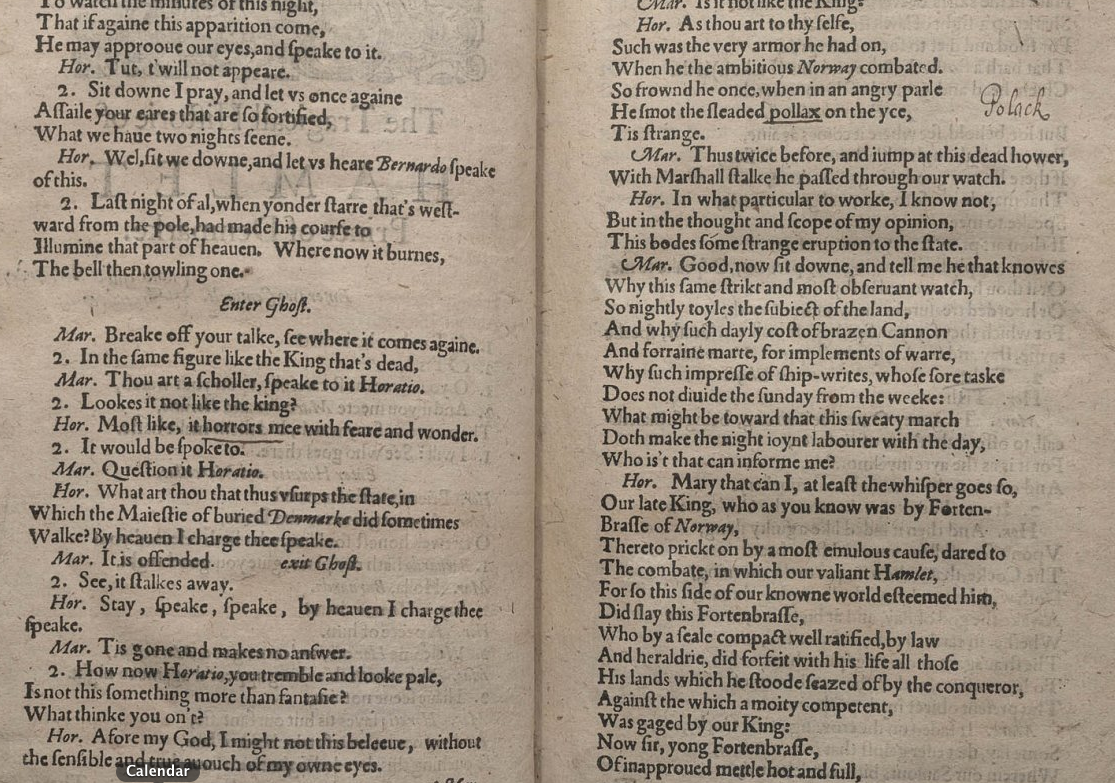 To watch the minutes of this night,
That if againe this apparition come,
He may approoue our eyes, and ſpeake to it.
Hor. Tut, t'will not appeare.
2. Sit downe I pray, and let vs once againe
Aſſaile your eares that are ſo fortified,
What we haue two nights ſeene.
Hor. Wel, ſit we downe, and let vs heare Bernardo ſpeake
of this.
2. Laſt night of al, when yonder ſtarre that's weſt-
ward from the pole, had made his courſe to
Illumine that part of heauen. Where now it burnes,
The bell then towling one.
Enter Ghoſt.
Mar. Breake off your talke, ſee where it comes againe.
2. In the ſame figure like the King that's dead,
Mar. Thou art a ſcholler, ſpeake to it Horatio.
2. Lookes it not like the king?
Hor. Moſt like, it horrors mee with feare and wonder.
2. It would be ſpoke to.
Mar. Queſtion it Horatio.
Hor. What art thou that thus vſurps the ſtate, in
Which the Maieſtie of buried Denmarke did ſometimes
Walke? By heauen I charge thee ſpeake.
Mar. It is offended. exit Ghoſt.
2. See, it ſtalkes away.
Hor. Stay, ſpeake, ſpeake, by heauen I charge thee
ſpeake.
Mar. Tis gone and makes no anſwer.
2. How now Horatio, you tremble and looke pale,
Is not this ſomething more than fantaſie?
What thinke you on't?
Hor. Afore my God, I might not this beleeue, without
the ſenſible and true auouch of my owne eyes.
Calendar
Mar. Is it not like the King?
Hor. As thou art to thy ſelfe,
Such was the very armor he had on,
When he the ambitious Norway combated.
So frownd he once, when in an angry parle
He ſmot the ſleaded pollax on the yce,
Polack
Tis ſtrange.
Mar. Thus twice before, and iump at this dead hower,
With Marſhall ſtalke he paſſed through our watch.
Hor. In what particular to worke, I know not,
But in the thought and ſcope of my opinion,
This bodes ſome ſtrange eruption to the ſtate.
Mar. Good, now ſit downe, and tell me he that knowes
Why this ſame ſtrikt and moſt obſeruant watch,
So nightly toyles the ſubiect of the land,
And why ſuch dayly coſt of brazen Cannon
And forraine marte, for implements of warre,
Why ſuch impreſſe of ſhip-writes, whoſe ſore taske
Does not diuide the ſunday from the weeke:
What might be toward that this ſweaty march
Doth make the night ioynt labourer with the day,
Who is't that can informe me?
Hor. Mary that can I, at leaſt the whiſper goes ſo,
Our late King, who as you know was by Forten-
Braſſe of Norway,
Thereto prickt on by a moſt emulous cauſe, dared to
The combate, in which our valiant Hamlet,
For ſo this ſide of our knowne world eſteemed him,
Did ſlay this Fortenbraſſe,
Who by a ſeale compact well ratified, by law
And heraldrie, did forfeit with his life all thoſe
His lands which he ſtoode ſeazed of by the conqueror,
Againſt the which a moity competent,
Was gaged by our King:
Now ſir, yong Fortenbraſſe,
Of inapproued mettle hot and full,